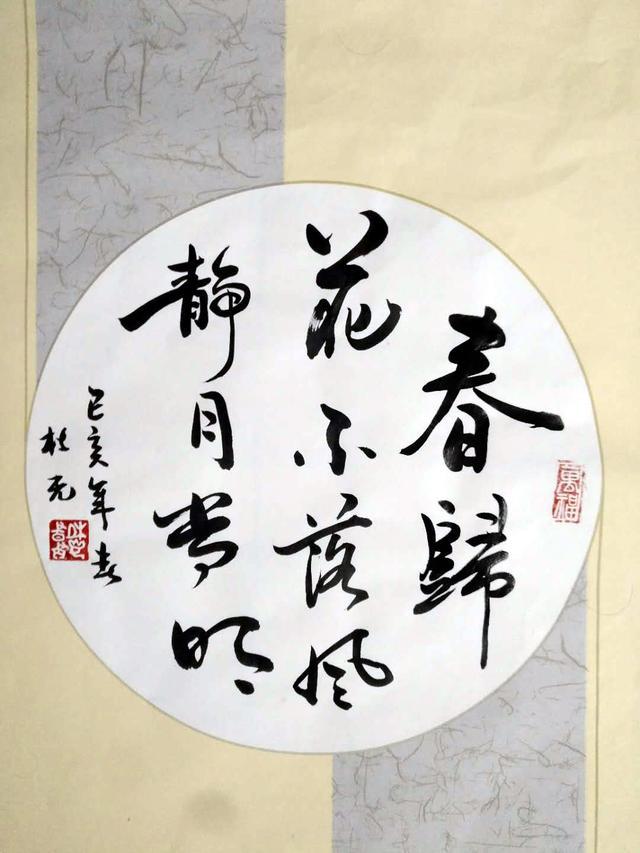 春歸
花不落風
靜月常明
己亥年春
杜元
萬福